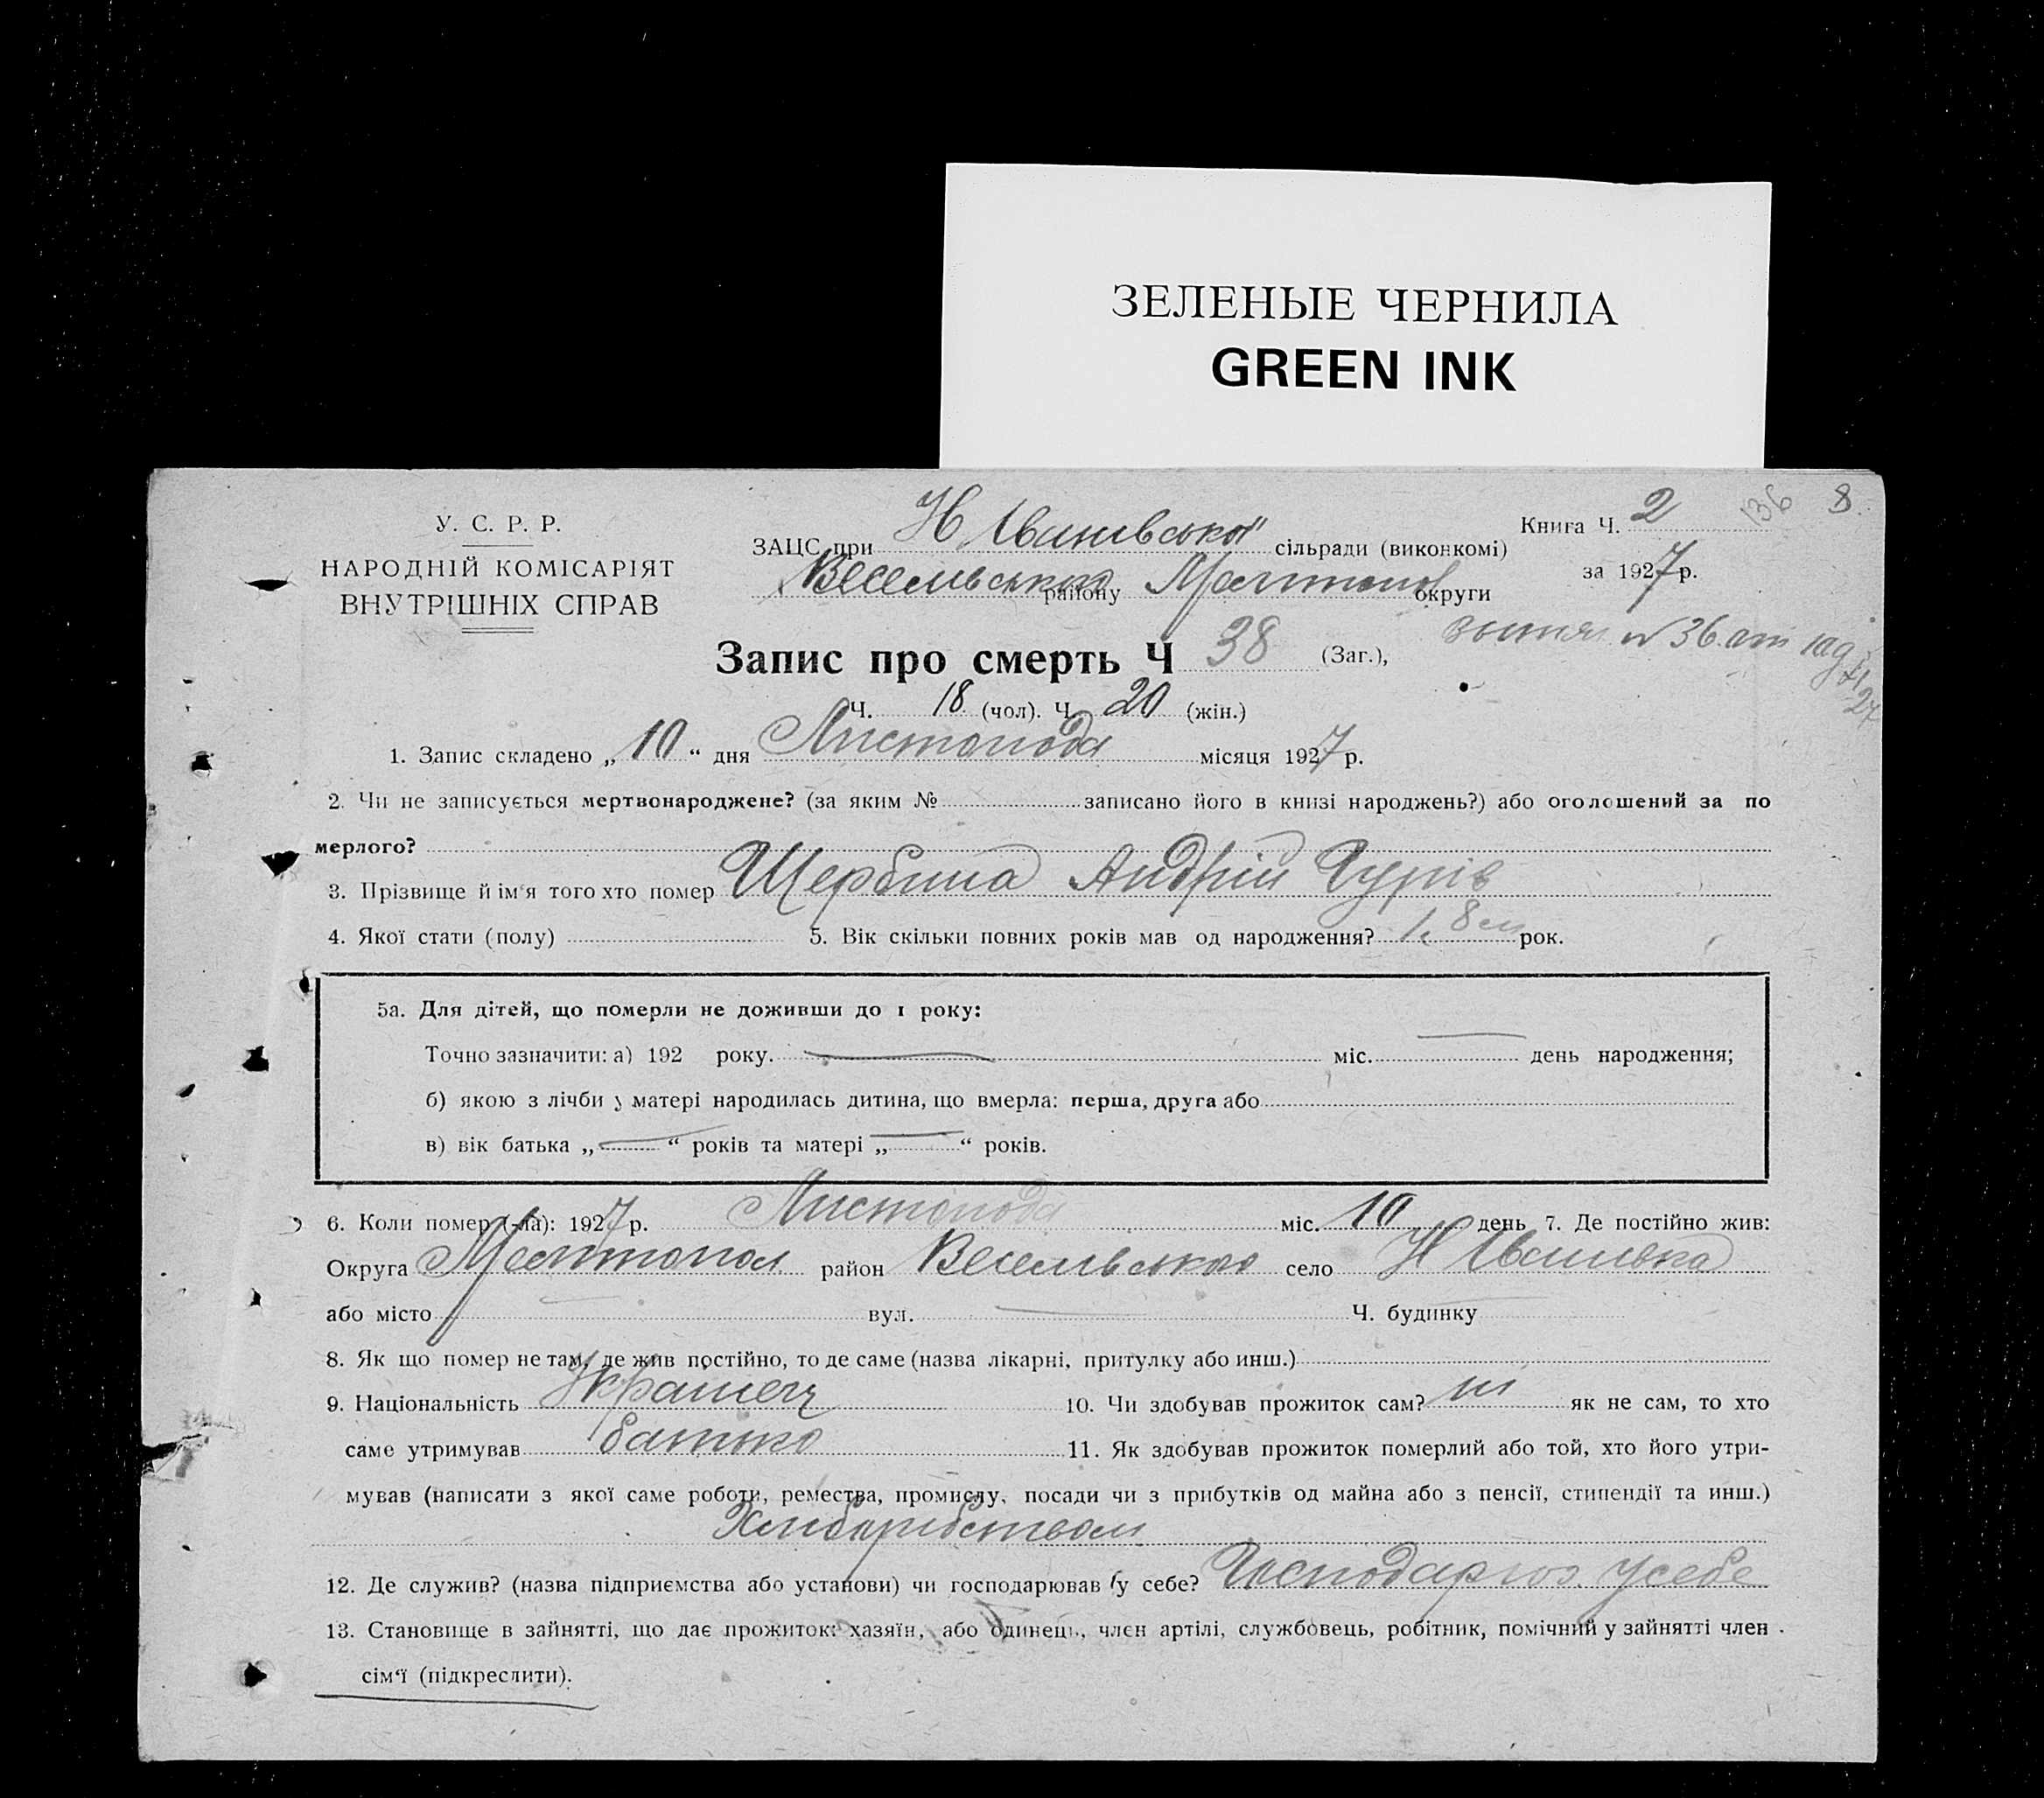 ЗЕЛЕНЫЕ ЧЕРНИЛА
GREEN INK
У. С. Р. Р.
НАРОДНІЙ КОМІСАРІЯТ
ВНУТРІШНІХ СПРАВ
ЗАЦС при Н Іванівської сільради (виконкомі)
Веселівського району Мелітопол округи
Книга Ч. 2
136 8
за 1927 р.
Запис про смерть Ч 38 (Заг.),
N 36 от 10
Ч. 18 (чол). Ч. 20 (жін.)
1. Запис складено „ 10 “ дня Листопода місяця 1927 р.
2. Чи не записується мертвонароджене? (за яким № записано його в книзі народжень?) або оголошений за по
мерлого?
3. Прізвище й ім‘я того хто помер Щербина Андрій Гурів
4. Якої стати (полу) 5. Вік скільки повних років мав од народження? 1, 8 м рок.
5а. Для дітей, що померли не доживши до 1 року:
Точно зазначити: а) 192 року. міс. день народження;
б) якою з лічби у матері народилась дитина, що вмерла: перша, друга або
в) вік батька „ “ років та матері „ “ років.
6. Коли помер (-ла): 1927 р. Листопода міс. 10 день 7. Де постійно жив:
Округа Мелітопол район Веселівського село Н Іванівка
або місто вул. Ч. будинку
8. Як що помер не там, де жив постійно, то де саме (назва лікарні, притулку або инш.)
9. Національність Українец 10. Чи здобував прожиток сам? ні як не сам, то хто
саме утримував батько 11. Як здобував прожиток померлий або той, хто його утри-
мував (написати з якої саме роботи, ремества, промислу, посади чи з прибутків од майна або з пенсії, стипендії та инш.)
Хліборібством
12. Де служив? (назва підприємства або установи) чи господарював у себе? Господарюв. у себе
13. Становище в зайнятті, що дає прожиток: хазяїн, або одинець, член артілі, службовець, робітник, помічний у зайнятті член
сім‘ї (підкреслити).